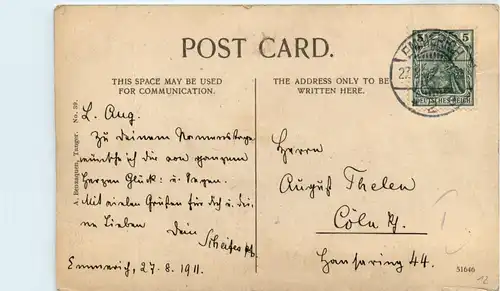 POST CARD.
THIS SPACE MAY BE USED
FOR COMMUNICATION.
THE ADDRESS ONLY TO BE
WRITTEN HERE.
EMMERICH
5 5
DEUTSCHES REICH
A. Benzaquen, Tanger. No. 39.
L. Aug.
Zu deinem Namenstage
wünsche ich dir von ganzem
Herzen Glück u. Segen.
Mit vielen Grüßen für dich u. dei-
ne Lieben Dein
Emmerich, 27. 8. 1911.
Herrn
August Thelen
Cöln Rh.
Hansaring 44.
51646
12